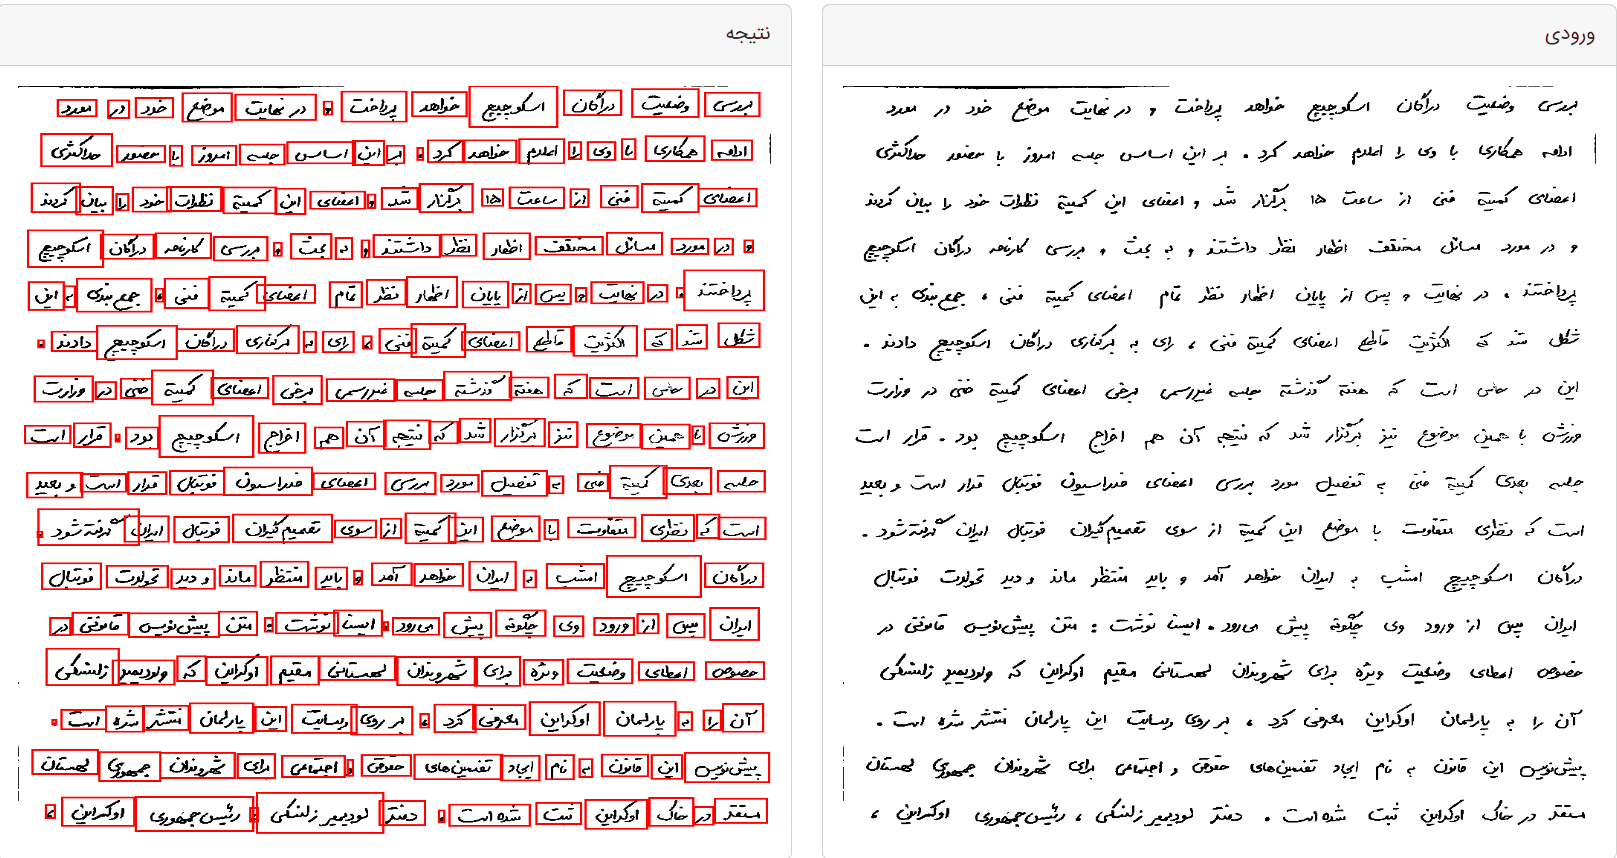 ورودی
بررسی وضعیت دراگان اسکوچیچ خواهد پرداخت و در نهایت موضع خود در مورد
ادامه همکاری با وی را اعلام خواهد کرد . بر این اساس جلسه امروز با حضور حداکثری
اعضای کمیته فنی از ساعت ۱۵ برگزار شد و اعضای این کمیته نظرات خود را بیان کردند
و در مورد مسائل مختلف اظهار نظر داشتند و به بحث و بررسی کارنامه دراگان اسکوچیچ
پرداختند . در نهایت و پس از پایان اظهار نظر تمام اعضای کمیته فنی ، جمع بندی به این
شکل شد که اکثریت قاطع اعضای کمیته فنی ، رای به برکناری دراگان اسکوچیچ دادند .
این در حالی است که هفته گذشته جلسه غیررسمی برخی اعضای کمیته فنی در وزارت
ورزش با همین موضوع نیز برگزار شد که نتیجه آن هم اخراج اسکوچیچ بود . قرار است
جلسه بعدی کمیته فنی به تفصیل مورد بررسی اعضای فدراسیون فوتبال قرار است و بعید
است که نظری متفاوت با موضع این کمیته از سوی تصمیم گیران فوتبال ایران گرفته شود .
دراگان اسکوچیچ امشب به ایران خواهد آمد و باید منتظر ماند و دید تحولات فوتبال
ایران پس از ورود وی چگونه پیش می‌رود . ایسنا نوشت : متن پیش‌نویس قانونی در
خصوص اعطای وضعیت ویژه برای شهروندان لهستانی مقیم اوکراین که ولودیمیر زلنسکی
آن را به پارلمان اوکراین معرفی کرد ، بر روی وبسایت این پارلمان منتشر شده است .
پیش‌نویس این قانون به نام ایجاد تضمین‌های حقوقی و اجتماعی برای شهروندان جمهوری لهستان
مستقر در خاک اوکراین ثبت شده است . دفتر لودیمیر زلنسکی ، رئیس‌جمهوری اوکراین ،
نتیجه
بررسی وضعیت دراگان اسکوچیچ خواهد پرداخت و در نهایت موضع خود در مورد
ادامه همکاری با وی را اعلام خواهد کرد . بر این اساس جلسه امروز با حضور حداکثری
اعضای کمیته فنی از ساعت ۱۵ برگزار شد و اعضای این کمیته نظرات خود را بیان کردند
و در مورد مسائل مختلف اظهار نظر داشتند و به بحث و بررسی کارنامه دراگان اسکوچیچ
پرداختند . در نهایت و پس از پایان اظهار نظر تمام اعضای کمیته فنی ، جمع بندی به این
شکل شد که اکثریت قاطع اعضای کمیته فنی ، رای به برکناری دراگان اسکوچیچ دادند .
این در حالی است که هفته گذشته جلسه غیررسمی برخی اعضای کمیته فنی در وزارت
ورزش با همین موضوع نیز برگزار شد که نتیجه آن هم اخراج اسکوچیچ بود . قرار است
جلسه بعدی کمیته فنی به تفصیل مورد بررسی اعضای فدراسیون فوتبال قرار است و بعید
است که نظری متفاوت با موضع این کمیته از سوی تصمیم گیران فوتبال ایران گرفته شود .
دراگان اسکوچیچ امشب به ایران خواهد آمد و باید منتظر ماند و دید تحولات فوتبال
ایران پس از ورود وی چگونه پیش می‌رود . ایسنا نوشت : متن پیش‌نویس قانونی در
خصوص اعطای وضعیت ویژه برای شهروندان لهستانی مقیم اوکراین که ولودیمیر زلنسکی
آن را به پارلمان اوکراین معرفی کرد ، بر روی وبسایت این پارلمان منتشر شده است .
پیش‌نویس این قانون به نام ایجاد تضمین‌های حقوقی و اجتماعی برای شهروندان جمهوری لهستان
مستقر در خاک اوکراین ثبت شده است . دفتر لودیمیر زلنسکی ، رئیس‌جمهوری اوکراین ،